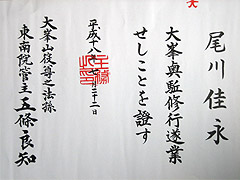 尾川佳永
大峯奥駈修行遂業
せしことを證す
平成十八年七月二十二日
大峯山役尊之法孫
東南院管主五條良知